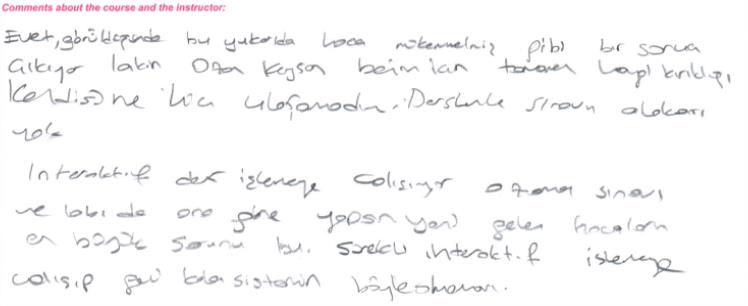 Comments about the course and the instructor:
Evet, görüldüğünde bu yukarıda hoca mükemmelmiş gibi bir sonuca
çıkıyor lakin Ozan Keysan benim için tamamen hayal kırıklığı,
Kendisine hiç ulaşamadım. Derslerle sınavın alakası
yok
İnteraktif ders işlemeye çalışıyor o zaman sınavı
ve labı da ona göre yapsın yani gelen hocaların
en büyük sorunu bu. Sürekli interaktif işlemeye
çalışıp